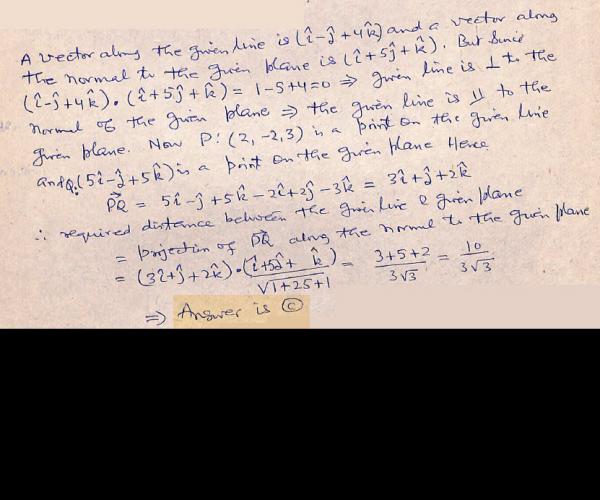 A vector along the given line is (î-ĵ+4k̂) and a vector along
the normal to the given plane is (î+5ĵ+k̂). But Since
(î-ĵ+4k̂)•(î+5ĵ+k̂) = 1-5+4=0 ⇒ given line is ⊥ to the
normal of the given plane ⇒ the given line is || to the
given plane. Now P:(2,-2,3) is a point on the given line
and Q:(5î-ĵ+5k̂) is a point on the given plane Hence
P⃗Q = 5î-ĵ+5k̂-2î+2ĵ-3k̂ = 3î+ĵ+2k̂
∴ required distance between the given line & given plane
= projection of P⃗Q along the normal to the given plane
= (3î+ĵ+2k̂)•(î+5ĵ+k̂)/√1+25+1 = 3+5+2/3√3 = 10/3√3
⇒ Answer is ⓒ